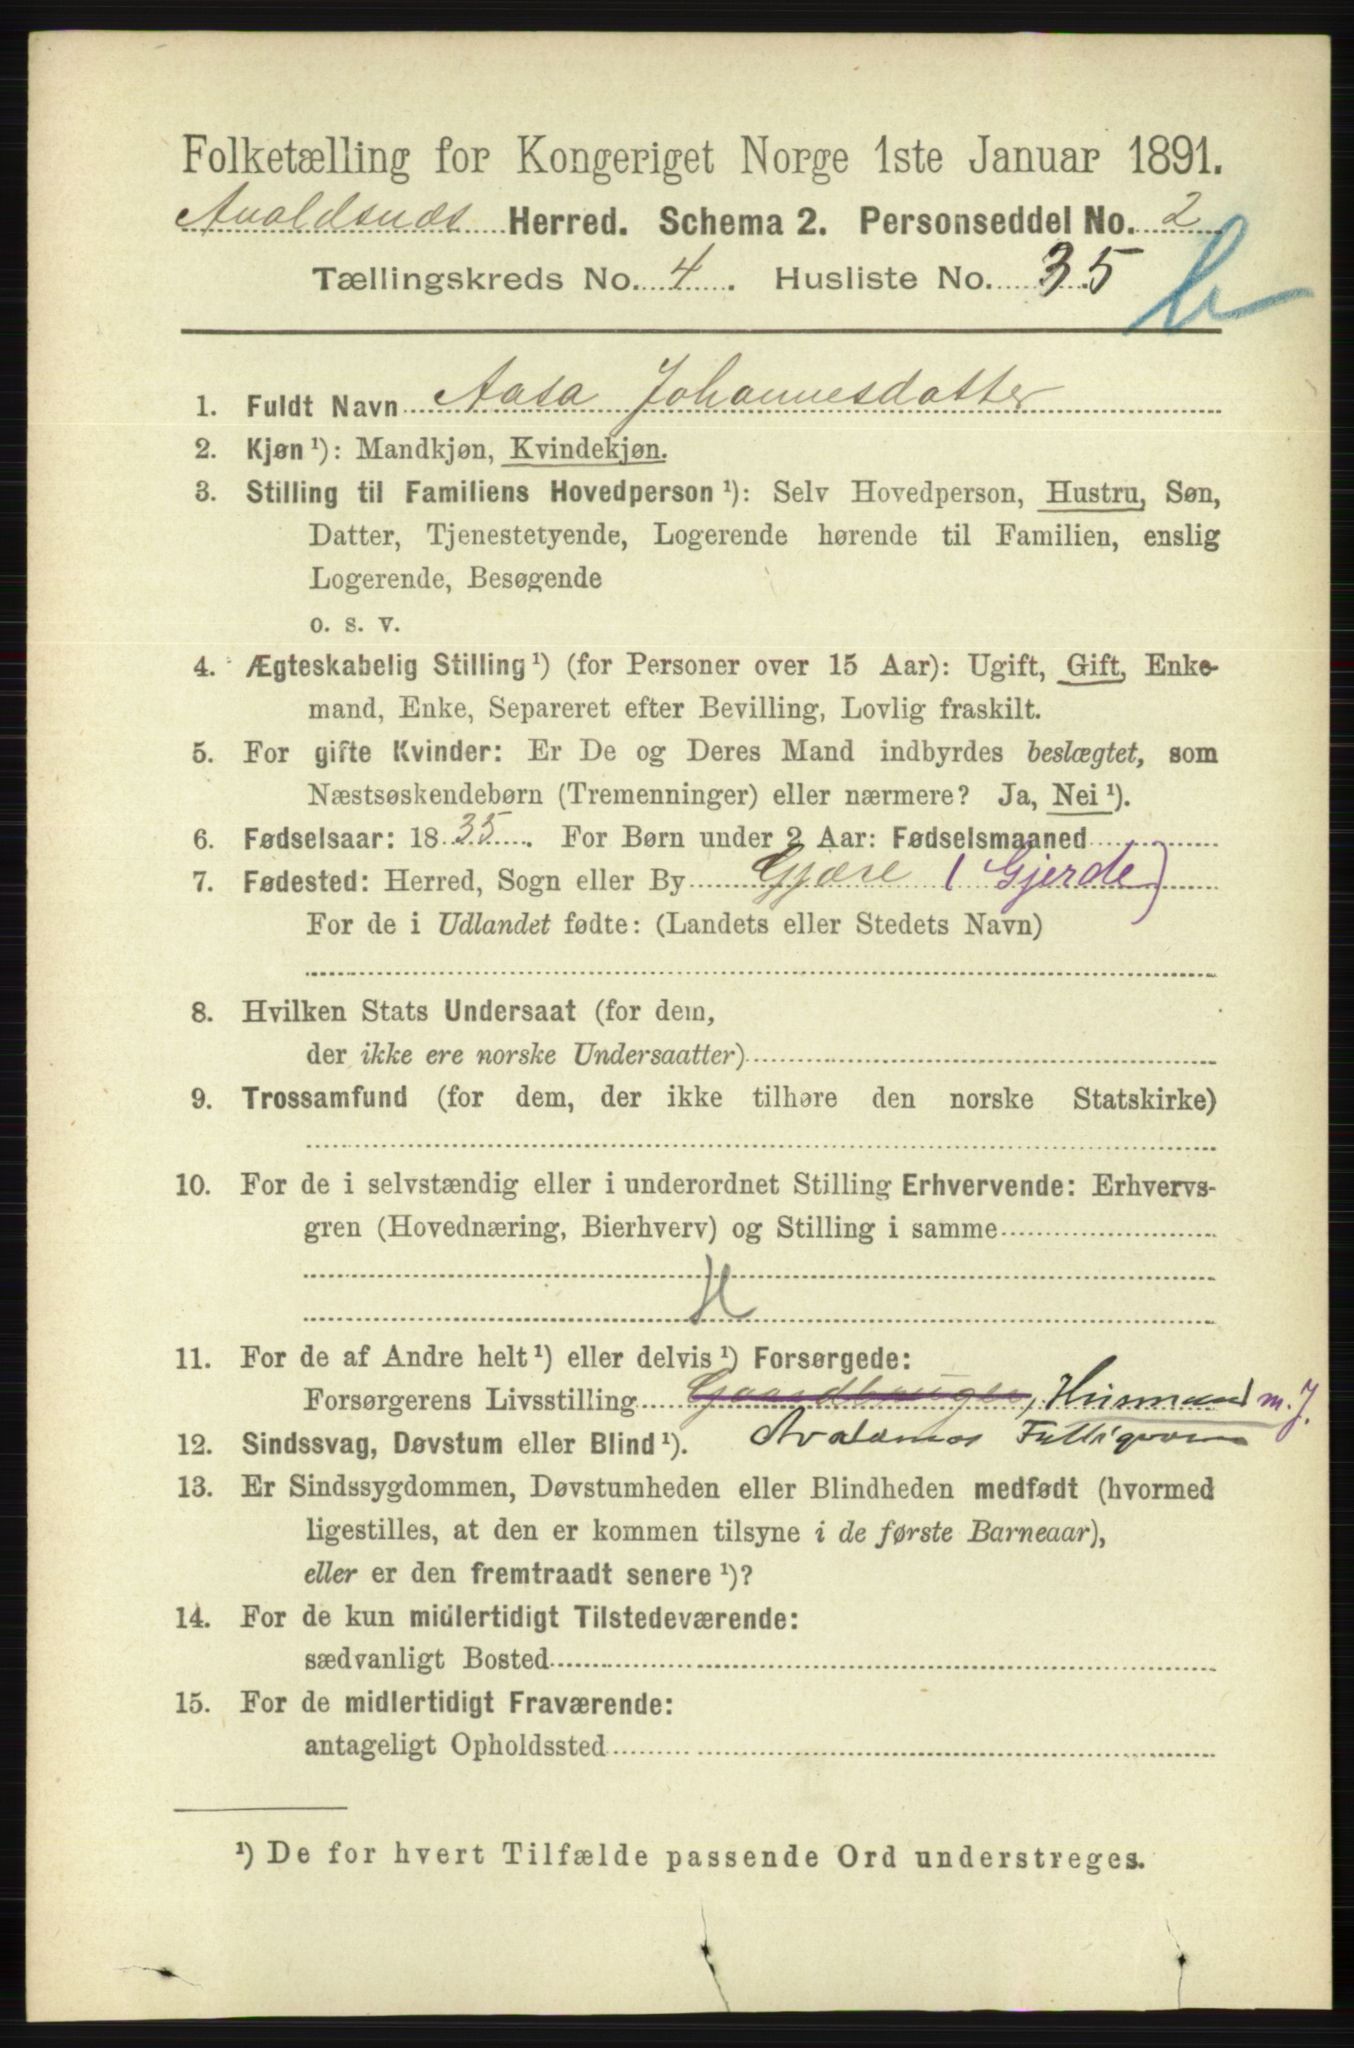 Folketælling for Kongeriget Norge 1ste Januar 1891.
Avaldsnæs Herred. Schema 2. Personseddel No. 2
Tællingskreds No. 4. Husliste No. 35
1. Fuldt Navn Aasa Johannesdatter
2. Kjøn ¹): Mandkjøn, Kvindekjøn.
3. Stilling til Familiens Hovedperson ¹): Selv Hovedperson, Hustru, Søn,
Datter, Tjenestetyende, Logerende hørende til Familien, enslig
Logerende, Besøgende
o. s. v.
4. Ægteskabelig Stilling ¹) (for Personer over 15 Aar): Ugift, Gift, Enke-
mand, Enke, Separeret efter Bevilling, Lovlig fraskilt.
5. For gifte Kvinder: Er De og Deres Mand indbyrdes beslægtet, som
Næstsøskendebørn (Tremenninger) eller nærmere? Ja, Nei ¹).
6. Fødselsaar: 1835. For Børn under 2 Aar: Fødselsmaaned
7. Fødested: Herred, Sogn eller By Gjære (Gjerde)
For de i Udlandet fødte: (Landets eller Stedets Navn)
8. Hvilken Stats Undersaat (for dem,
der ikke ere norske Undersaatter)
9. Trossamfund (for dem, der ikke tilhøre den norske Statskirke)
10. For de i selvstændig eller i underordnet Stilling Erhvervende: Erhvervs-
gren (Hovednæring, Bierhverv) og Stilling i samme
H
11. For de af Andre helt ¹) eller delvis ¹) Forsørgede:
Forsørgerens Livsstilling Gaardbruger, Husmand m. J.
12. Sindssvag, Døvstum eller Blind ¹).
13. Er Sindssygdommen, Døvstumheden eller Blindheden medfødt (hvormed
ligestilles, at den er kommen tilsyne i de første Barneaar),
eller er den fremtraadt senere ¹)?
14. For de kun midlertidigt Tilstedeværende:
sædvanligt Bosted
15. For de midlertidigt Fraværende:
antageligt Opholdssted
¹) De for hvert Tilfælde passende Ord understreges.